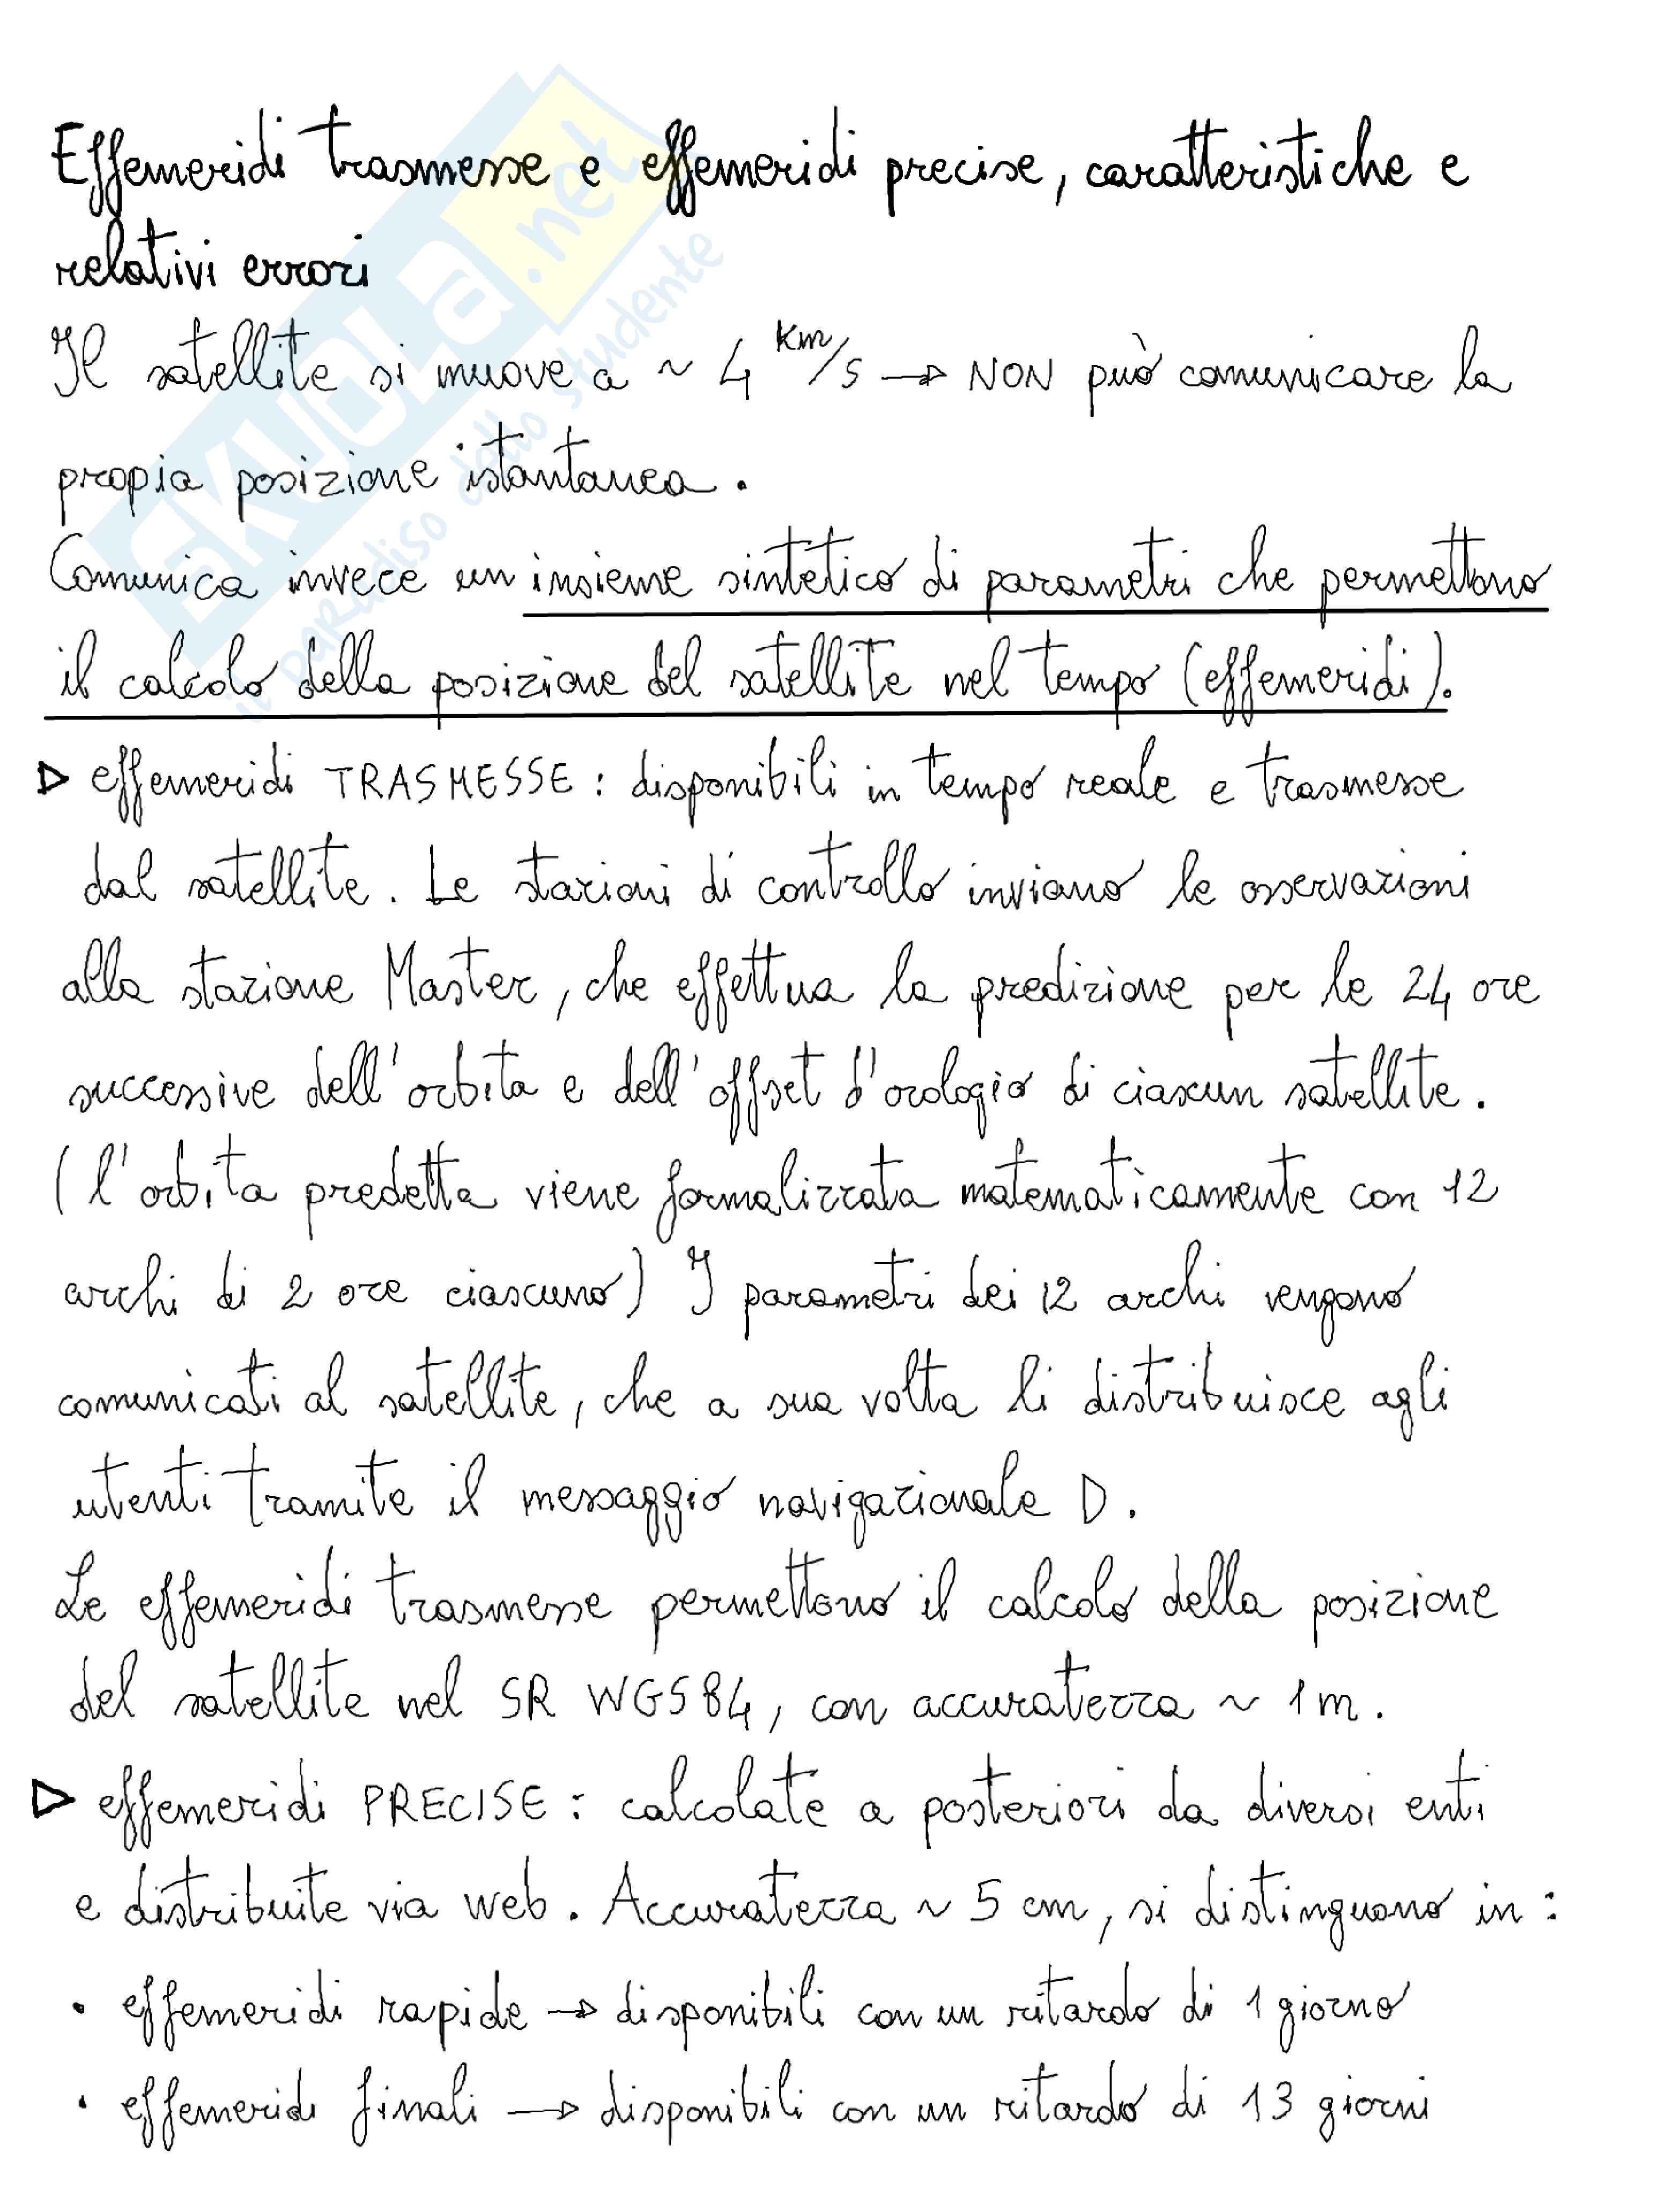 Effemeridi trasmesse e effemeridi precise, caratteristiche e
relativi errori
Il satellite si muove a ~ 4 Km/s → NON può comunicare la
propia posizione istantanea.
Comunica invece un insieme sintetico di parametri che permettono
il calcolo della posizione del satellite nel tempo (effemeridi).
▷ effemeridi TRASMESSE : disponibili in tempo reale e trasmesse
dal satellite. Le stazioni di controllo inviano le osservazioni
alla stazione Master, che effettua la predizione per le 24 ore
successive dell'orbita e dell'offset d'orologio di ciascun satellite.
(l'orbita predetta viene formalizzata matematicamente con 12
archi di 2 ore ciascuno) I parametri dei 12 archi vengono
comunicati al satellite, che a sua volta li distribuisce agli
utenti tramite il messaggio navigazionale D.
Le effemeridi trasmesse permettono il calcolo della posizione
del satellite nel SR WGS84, con accuratezza ~ 1 m.
▷ effemeridi PRECISE : calcolate a posteriori da diversi enti
e distribuite via web. Accuratezza ~ 5 cm, si distinguono in :
• effemeridi rapide → disponibili con un ritardo di 1 giorno
• effemeridi finali → disponibili con un ritardo di 13 giorni
SKUOLA.net
il paradiso dello studente